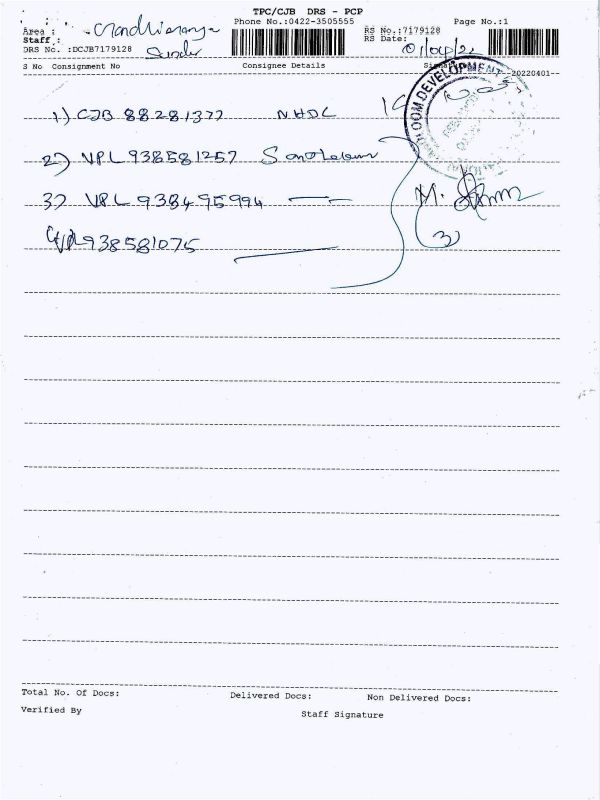 TPC/CJB DRS - PCP
Area : Gandhimanagar Phone No.:0422-3505555 RS No.:7179128 Page No.:1
Staff : Sundar RS Date: 01/04/22
DRS No. :DCJB7179128
S No Consignment No Consignee Details --20220401--
1) CJB 88281377 NHDL
2) VPL938581257
3) VPL 938495994
4) VPL938581075
LOOM DEVELOPMENT
M.
(3)
Total No. Of Docs: Delivered Docs: Non Delivered Docs:
Verified By Staff Signature